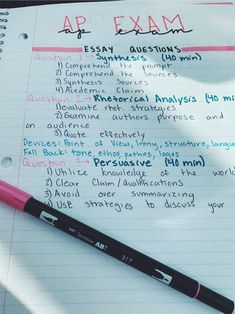 AP EXAM
ap exam
ESSAY QUESTIONS
Question 1 → Synthesis (40 min)
1) Comprehend the prompt
2) Comprehend the sources
3) Synthesis Sources
4) Academic Claim
Question 2 → Rhetorical Analysis (40 min
1) evaluate rhet. strategies
2) Examine authors purpose and
on audience
3) Quote effectively
Devices: Point of View, Irony, structure, langu
Fall Back: tone, ethos, pathos, logos
Question 3 → Persuasive (40 min)
1) Utilize knowledge of the work
2) Clear Claim/Qualifications
3) Avoid over summarizing
4) USE strategies to discuss your
Tombow ABT
317